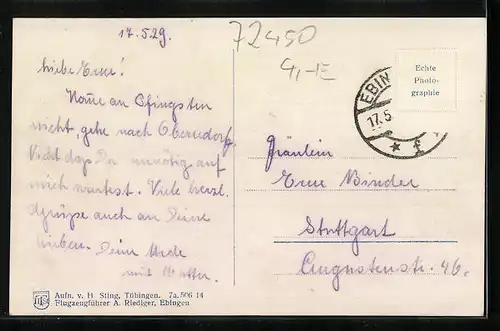 17.5.29.
72450
4,-E
Liebe Erne!
Komme an Pfingsten
nicht, gehe nach Oberndorf.
Nicht daß Du unnötig auf
mich wartest. Viele herzl.
Grüße auch an Deine
Lieben. Deine
mit
EBIN
17.5
Echte
Photo-
graphie
Fräulein
Erne Binder
Stuttgart
Augustenstr. 46.
Aufn. v. H. Sting, Tübingen. 7a. 506 14
Flugzeugführer A. Riediger, Ebingen